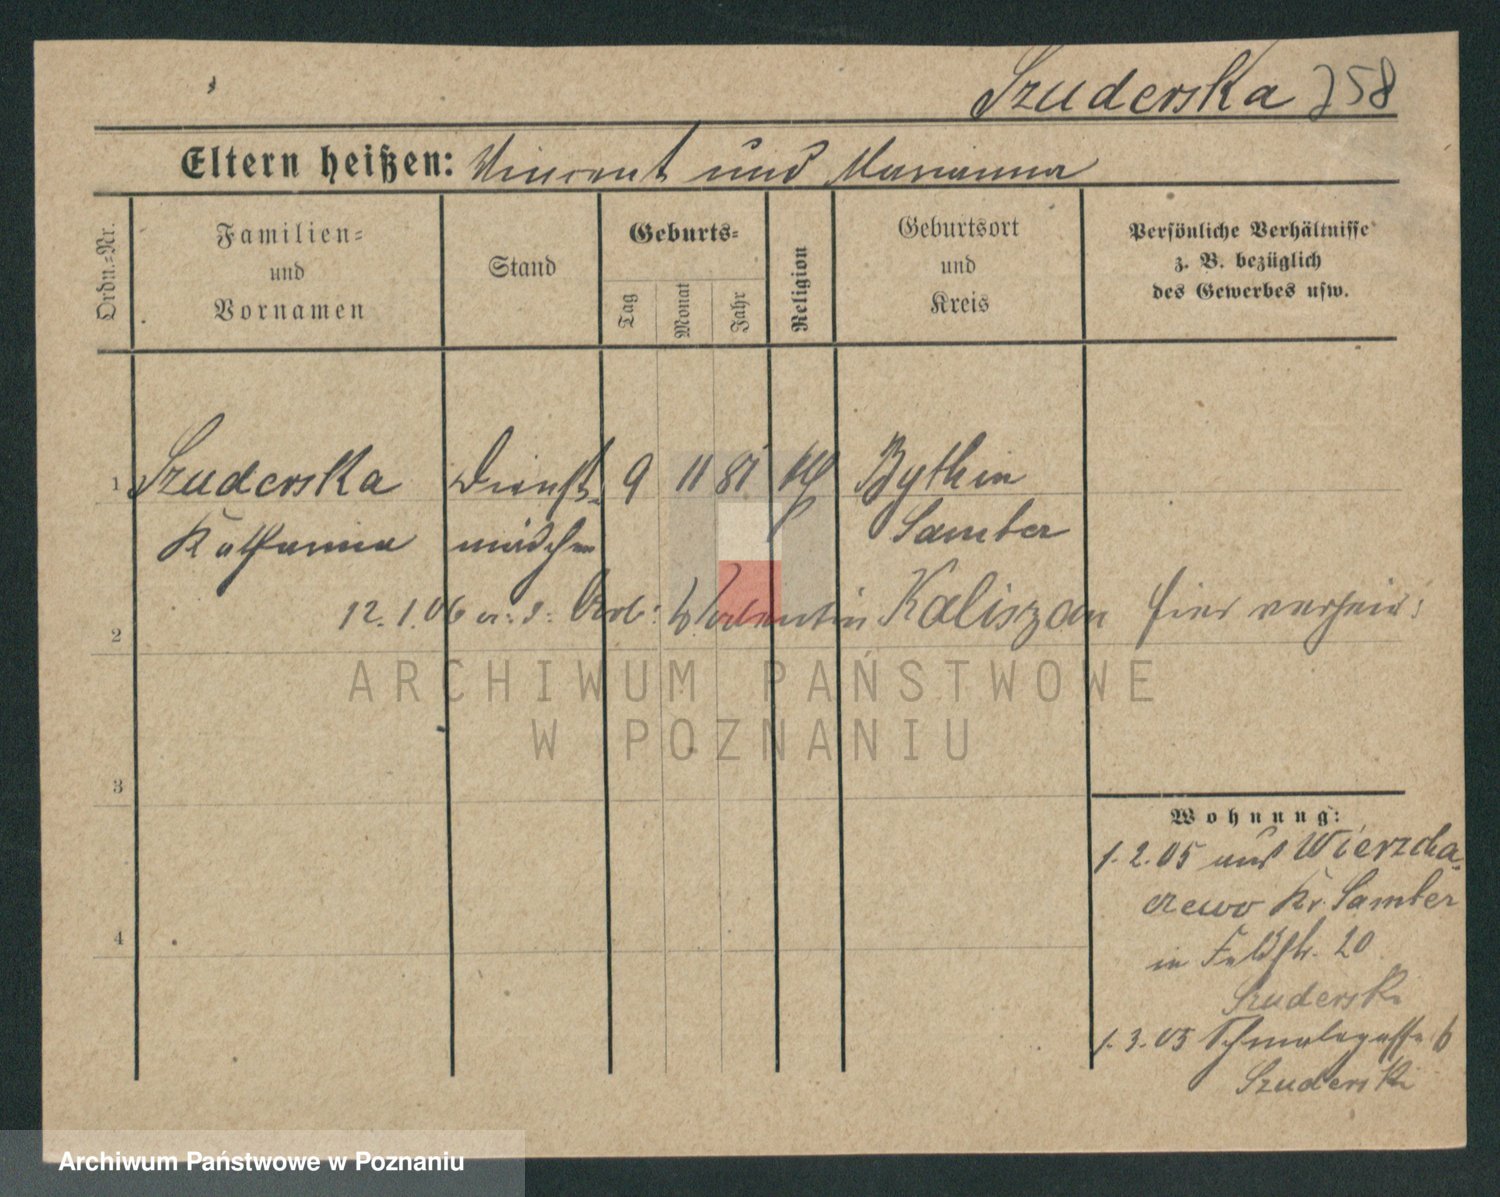 Szuderska 758
Eltern heißen: Vincent und Marianna
Ordn.-Nr.
Familien-
und
Vornamen
Stand
Geburts-
Tag
Monat
Jahr
Religion
Geburtsort
und
Kreis
Persönliche Verhältnisse
z. B. bezüglich
des Gewerbes usw.
1 Szuderska Dienst- 9 11 81 Bythin
Katharina mädchen Samter
12.1.06 Arb: Valentin Kaliszan hier verheir:
2
ARCHIWUM PAŃSTWOWE
W POZNANIU
3
4
Wohnung:
1.2.05 aus Wierzcha-
czewo Kr. Samter
in Feldstr. 20
Szuderski
1.3.05 Schmalegasse 6
Szuderski
Archiwum Państwowe w Poznaniu